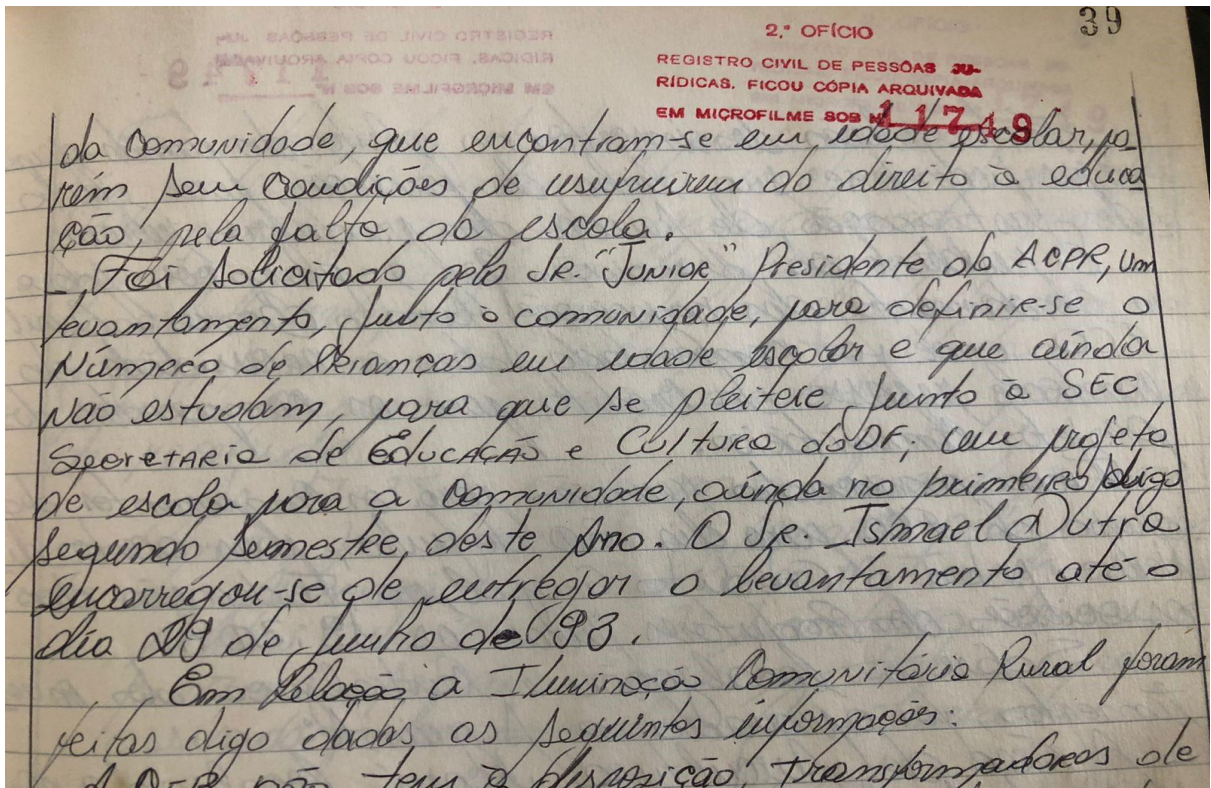 39
2.º OFÍCIO
REGISTRO CIVIL DE PESSÔAS JU-
RÍDICAS. FICOU CÓPIA ARQUIVADA
EM MICROFILME SOB Nº 11749
da Comunidade, que encontram-se em idade escolar, po
rém sem Condições de usufruirem do direito à educa
ção, pela falta da escola.
- Foi solicitado pelo Sr. "Junior" Presidente da ACPR, um
levantamento, junto à comunidade, para definir-se o
Número de Crianças em idade escolar e que ainda
Não estudam, para que se pleiteie junto à SEC
Secretaria de Educação e Cultura do DF; um projeto
de escola para a Comunidade, ainda no primeiro digo
segundo semestre, deste Ano. O Sr. Ismael Dutra
encarregou-se de entregar o levantamento até o
dia 29 de junho de 93.
Em Relação a Iluminação Comunitária Rural foram
feitas digo dadas as seguintes informações:
não tem à disposição, transformadores de